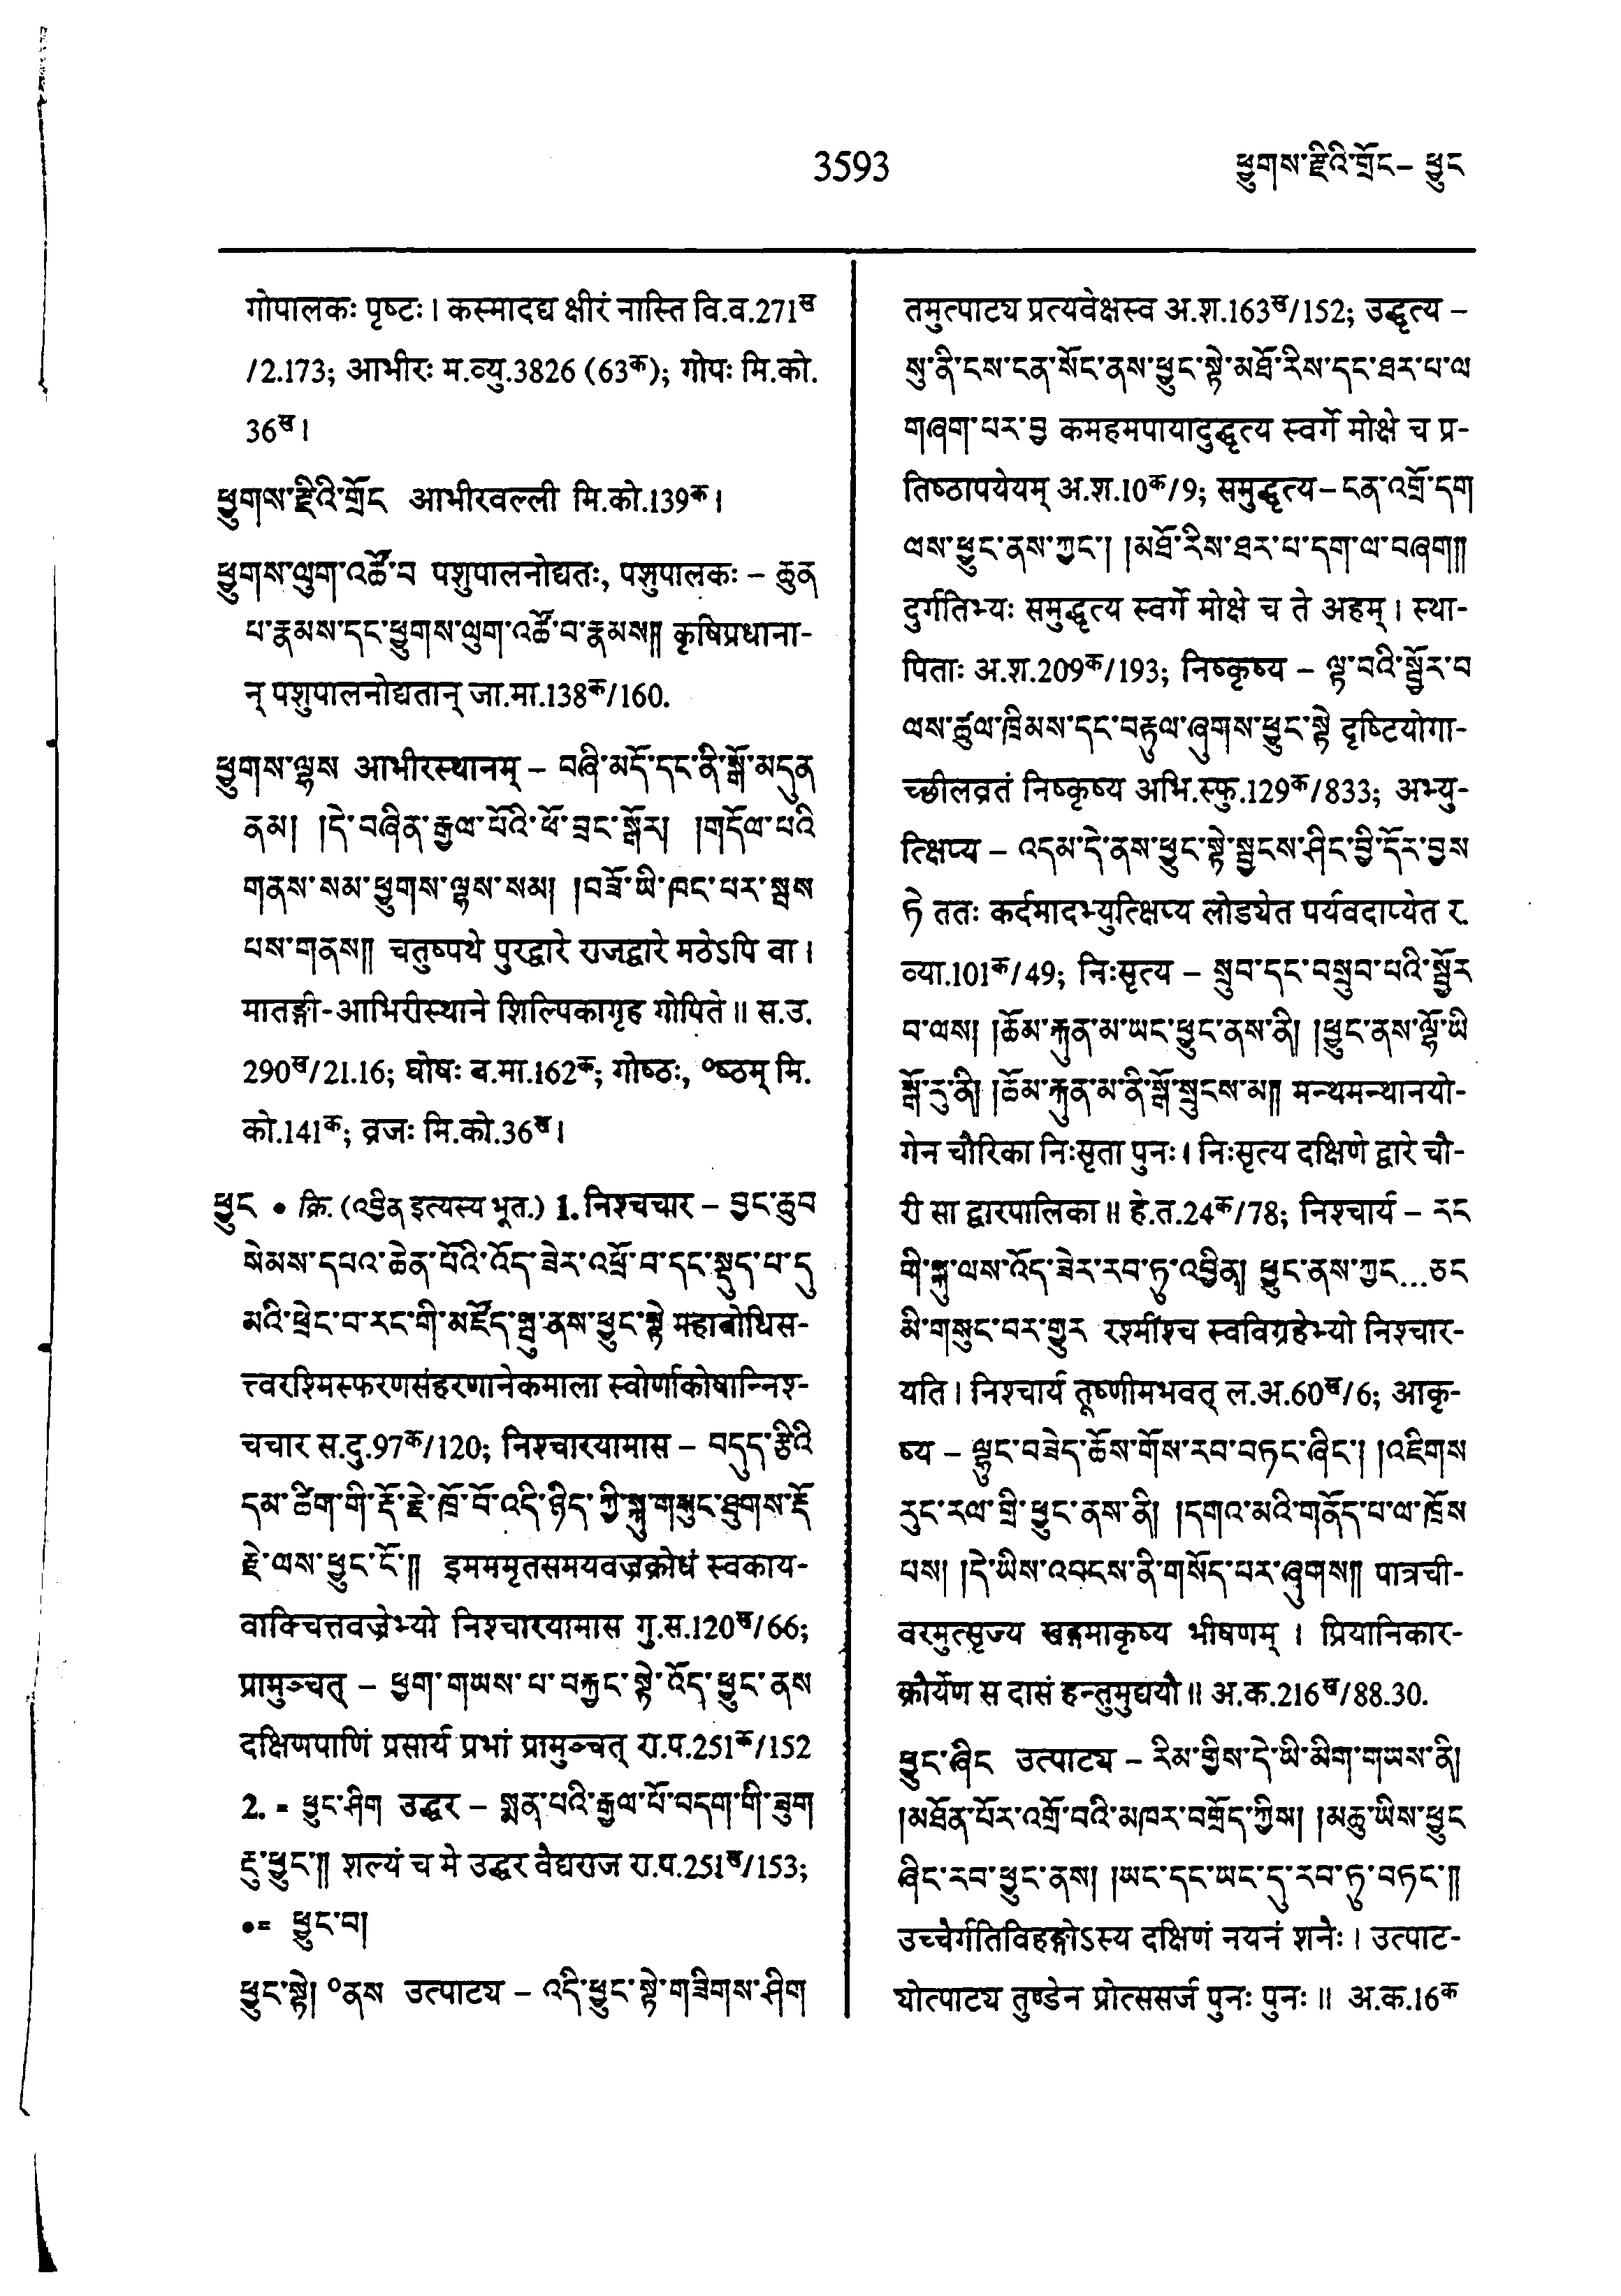 3593
ཕྱུགས་རྫིའི་གྲོང – ཕྱུང
गोपालकः पृष्टः। कस्मादद्य क्षीरं नास्ति वि.व.271ख
/2.173; आभीरः म.व्यु.3826 (63क); गोपः मि.को.
36ख।
ཕྱུགས་རྫིའི་གྲོང आभीरवल्ली मि.को.139क।
ཕྱུགས་ལུག་འཚོ་བ पशुपालनोद्यतः, पशुपालकः – ཆུན
པ་རྣམས་དང་ཕྱུགས་ལུག་འཚོ་བ་རྣམས༎ कृषिप्रधाना-
न् पशुपालनोद्यतान् जा.मा.138क/160.
ཕྱུགས་ལྷས आभीरस्थानम् – བཞི་མདོ་དང་ནི་སྒོ་མདུན
ནམ། །དེ་བཞིན་རྒྱལ་པོའི་ཕོ་བྲང་སྒོར། །གདོལ་པའི
གནས་སམ་ཕྱུགས་ལྷས་སམ། །བཟོ་ཡི་ཁང་པར་སྦས
པས་གནས༎ चतुष्पथे पुरद्वारे राजद्वारे मठेऽपि वा।
मातङ्गी-आभिरीस्थाने शिल्पिकागृह गोपिते॥ स.उ.
290ख/21.16; घोषः ब.मा.162क; गोष्ठः, ०ष्ठम् मि.
को.141क; व्रजः मि.को.36ख।
ཕྱུང • क्रि. (འབྱིན इत्यस्य भूत.) 1. निश्चचार – བྱང་ཆུབ
སེམས་དཔའ་ཆེན་པོའི་འོད་ཟེར་འཕྲོ་བ་དང་སྡུད་པ་དུ
མའི་ཕྲེང་བ་རང་གི་མཛོད་སྤུ་ནས་ཕྱུང་སྟེ महाबोधिस-
त्त्वरश्मिस्फरणसंहरणानेकमाला स्वोर्णाकोषान्निश्-
चचार स.दु.97क/120; निश्चारयामास – བདུད་རྩིའི
དམ་ཚིག་གི་རྡོ་རྗེ་ཁྲོ་བོ་འདི་ཉིད་ཀྱི་སྐུ་གསུང་ཐུགས་རྡོ
རྗེ་ལས་ཕྱུང་ངོ་༎ इममममृतसमयवज्रक्रोधं स्वकाय-
वाक्चित्तवज्रेभ्यो निश्चारयामास गु.स.120ख/66;
प्रामुञ्चत् – ཕྱག་གཡས་པ་བརྐྱང་སྟེ་འོད་ཕྱུང་ནས
दक्षिणपाणिं प्रसार्य प्रभां प्रामुञ्चत् रा.प.251क/152
2. = ཕྱུང་ཤིག उद्धर – སྨན་པའི་རྒྱལ་པོ་བདག་གི་ཟུག
རྔུ་ཕྱུང་༎ शल्यं च मे उद्धर वैद्यराज रा.प.251ख/153;
•= ཕྱུང་བ།
ཕྱུང་སྟེ། ०ནས उत्पाट्य – འདི་ཕྱུང་སྟེ་གཟིགས་ཤིག
तमुत्पाट्य प्रत्यवेक्षस्व अ.श.163ख/152; उद्धृत्य –
སུ་ནི་ངས་ངན་སོང་ནས་ཕྱུང་སྟེ་མཐོ་རིས་དང་ཐར་པ་ལ
གཞག་པར་བྱ कमहमपायादुद्धृत्य स्वर्गे मोक्षे च प्र-
तिष्ठापयेयम् अ.श.10क/9; समुद्धृत्य – ངན་འགྲོ་དག
ལས་ཕྱུང་ནས་ཀྱང་། །མཐོ་རིས་ཐར་པ་དག་ལ་བཞག༎
दुर्गतिभ्यः समुद्धृत्य स्वर्गे मोक्षे च ते अहम्। स्था-
पिताः अ.श.209क/193; निष्कृष्य – ལྟ་བའི་སྦྱོར་བ
ལས་ཚུལ་ཁྲིམས་དང་བརྟུལ་ཞུགས་ཕྱུང་སྟེ दृष्टियोगा-
च्छीलव्रतं निष्कृष्य अभि.स्फु.129क/833; अभ्यु-
त्क्षिप्य – འདམ་དེ་ནས་ཕྱུང་སྟེ་སྦྱངས་ཤིང་བྱི་དོར་བྱས
ཏེ ततः कर्दमादभ्युत्क्षिप्य लोड्येत पर्यवदाप्येत र.
व्या.101क/49; निःसृत्य – སྲུབ་དང་བསྲུབ་པའི་སྦྱོར
བ་ལས། །ཆོམ་རྐུན་མ་ཡང་ཕྱུང་ནས་ནི། །ཕྱུང་ནས་ལྷོ་ཡི
སྒོ་རུ་ནི། །ཆོམ་རྐུན་མ་ནི་སྒོ་སྲུངས་མ༎ मन्थमन्थानयो-
गेन चौरिका निःसृता पुनः। निःसृत्य दक्षिणे द्वारे चौ-
री सा द्वारपालिका॥ हे.त.24क/78; निश्चार्य – རང
གི་སྐུ་ལས་འོད་ཟེར་རབ་ཏུ་འབྱིན། ཕྱུང་ནས་ཀྱང...ཅང
མི་གསུང་བར་གྱུར रश्मींश्च स्वविग्रहेभ्यो निश्चार-
यति। निश्चार्य तूष्णीमभवत् ल.अ.60ख/6; आकृ-
ष्य – ལྷུང་བཟེད་ཆོས་གོས་རབ་བཏང་ཞིང་། །འཇིགས
རུང་རལ་གྲི་ཕྱུང་ནས་ནི། །དགའ་མའི་གནོད་པ་ལ་ཁྲོས
པས། །དེ་ཡིས་འབངས་ནི་གསོད་པར་ཞུགས༎ पात्रची-
वरमुत्सृज्य खड्गमाकृष्य भीषणम्। प्रियानिकार-
क्रौर्येण स दासं हन्तुमुद्ययौ॥ अ.क.216ख/88.30.
ཕྱུང་ཞིང उत्पाट्य – རིམ་གྱིས་དེ་ཡི་མིག་གཡས་ནི།
།མཐོན་པོར་འགྲོ་བའི་མཁར་བགྲོད་ཀྱིས། །མཆུ་ཡིས་ཕྱུང
ཞིང་རབ་ཕྱུང་ནས། །ཡང་དང་ཡང་དུ་རབ་ཏུ་བཏང་༎
उच्चैर्गतिविहङ्गोऽस्य दक्षिणं नयनं शनैः। उत्पाट-
योत्पाट्य तुण्डेन प्रोत्ससर्ज पुनः पुनः॥ अ.क.16क